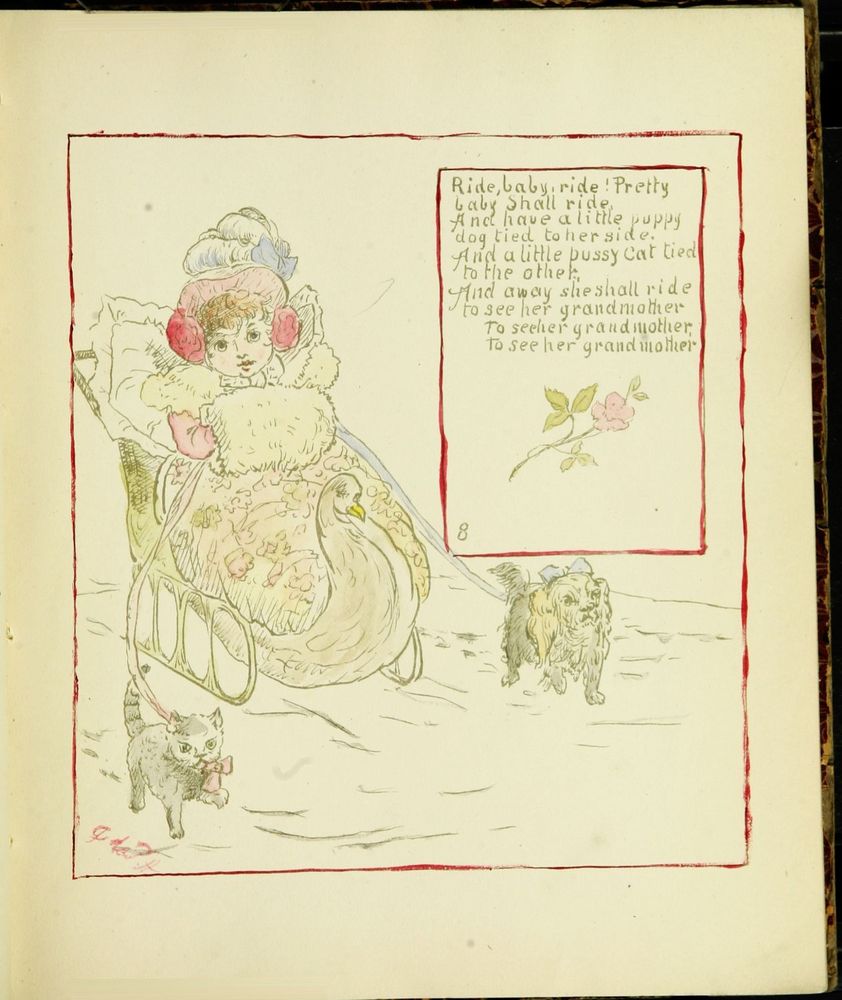 Ride, baby, ride! Pretty
baby Shall ride,
And have a little puppy
dog tied to her side.
And a little pussy Cat tied
to the other,
And away she shall ride
to see her grandmother
To see her grandmother,
To see her grandmother
8